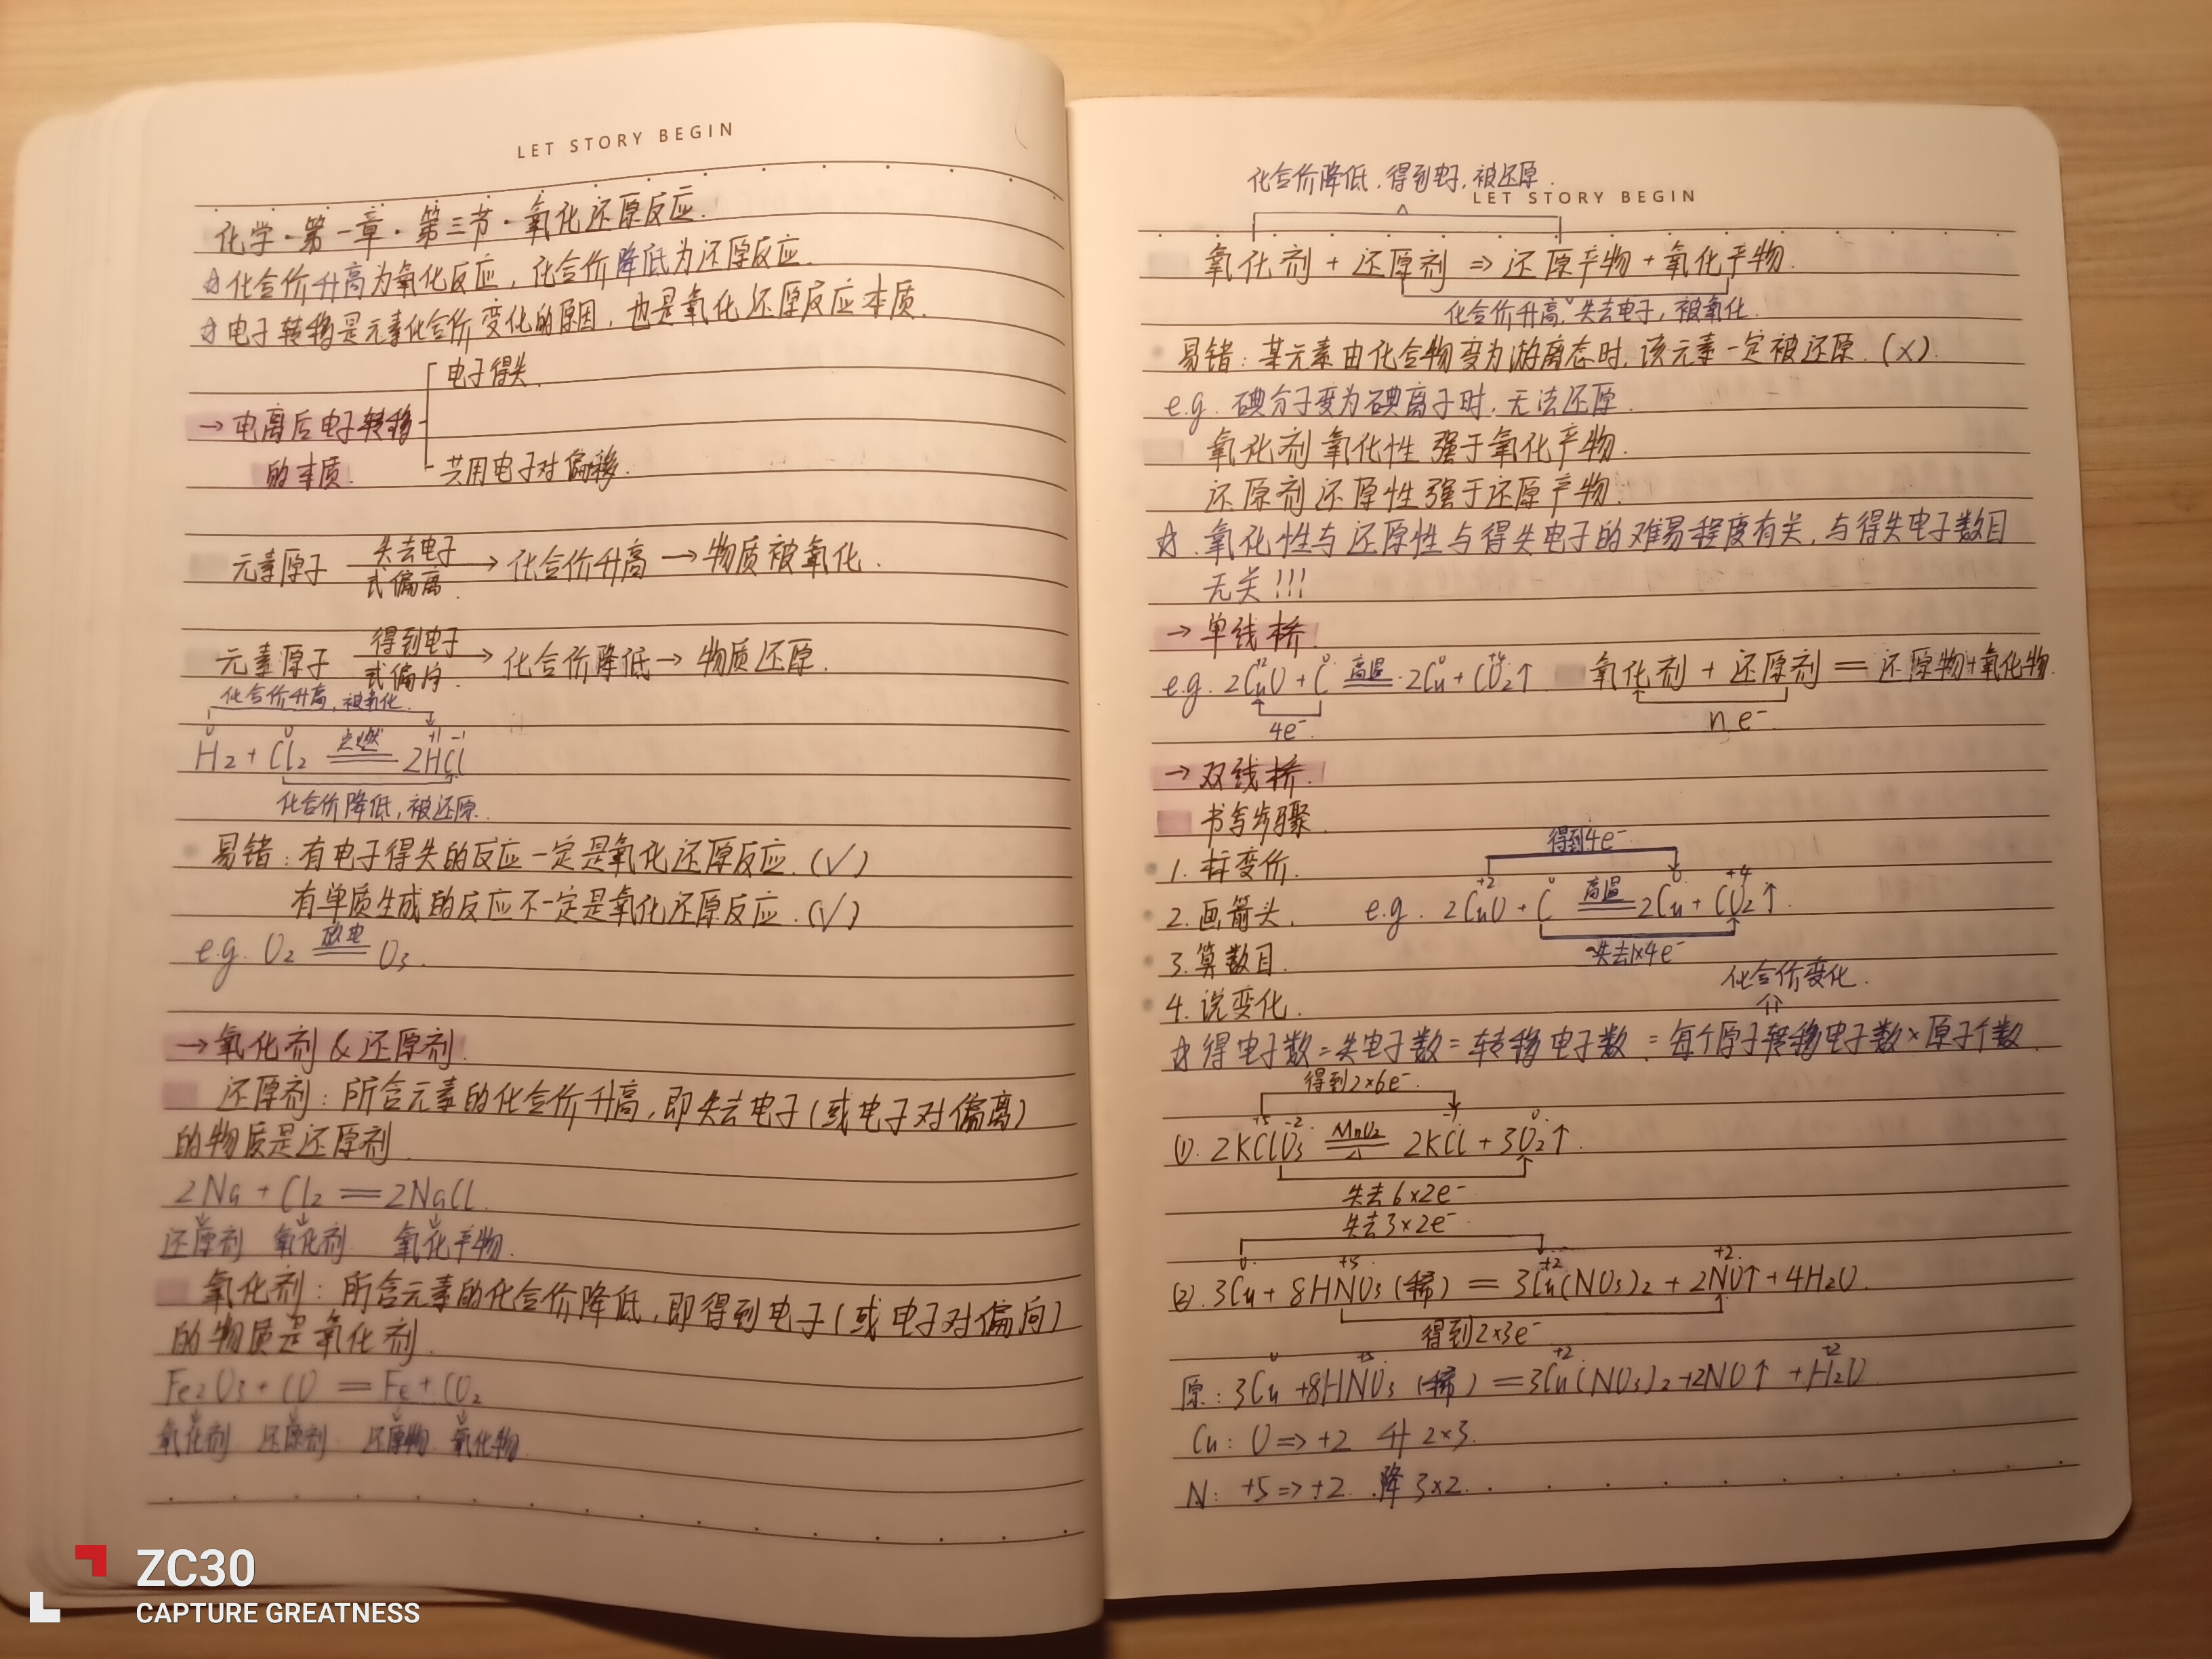 LET STORY BEGIN
化学·第一章·第三节·氧化还原反应.
☆化合价升高为氧化反应,化合价降低为还原反应.
☆电子转移是元素化合价变化的原因,也是氧化还原反应本质.
电子得失.
→电离后电子转移
的本质.
共用电子对偏移.
失去电子
元素原子 → 化合价升高→物质被氧化.
式偏离.
得到电子
元素原子 → 化合价降低→物质还原.
式偏向.
化合价升高,被氧化.
0 0 +1 -1
H₂ + Cl₂ 点燃 2HCl
化合价降低,被还原.
易错:有电子得失的反应一定是氧化还原反应.(√)
有单质生成的反应不一定是氧化还原反应.(√)
e.g. O₂ 放电 O₃.
→氧化剂&还原剂.
还原剂:所含元素的化合价升高,即失去电子(或电子对偏离)
的物质是还原剂
2Na + Cl₂ = 2NaCl.
还原剂 氧化剂 氧化产物.
氧化剂:所含元素的化合价降低,即得到电子(或电子对偏向)
的物质是氧化剂.
Fe₂O₃+CO = Fe+CO₂
氧化剂 还原剂 还原物 氧化物
ZC30
CAPTURE GREATNESS
化合价降低.得到电子,被还原.
LET STORY BEGIN
氧化剂+还原剂⇒还原产物+氧化产物.
化合价升高,失去电子,被氧化.
易错:某元素由化合物变为游离态时,该元素一定被还原.(×).
e.g. 碘分子变为碘离子时,无法还原.
氧化剂氧化性强于氧化产物.
还原剂还原性强于还原产物.
☆.氧化性与还原性与得失电子的难易程度有关,与得失电子数目
无关!!!
→单线桥.
+2 0 0 +4
e.g. 2CuO + C 高温 2Cu + CO₂↑ 氧化剂+还原剂=还原物+氧化物.
4e⁻ ne⁻
→双线桥.
书写步骤.
得到4e⁻
1.标变价.
+2 0 0 +4
2.画箭头. e.g. 2CuO + C 高温 2Cu + CO₂↑.
失去1×4e⁻
3.算数目.
化合价变化.
4.说变化.
☆得电子数=失电子数=转移电子数=每个原子转移电子数×原子个数
得到2×6e⁻
+5 -2 -1 0
(1). 2KClO₃ MnO₂ △ 2KCl + 3O₂↑.
失去6×2e⁻
失去3×2e⁻
0 +5 +2 +2
(2). 3Cu + 8HNO₃(稀) = 3Cu(NO₃)₂ + 2NO↑ + 4H₂O.
得到2×3e⁻
0 +5 +2 +2
原:3Cu+8HNO₃(稀)=3Cu(NO₃)₂+2NO↑+H₂O
Cu: 0⇒+2 升2×3.
N: +5⇒+2 .降3×2.